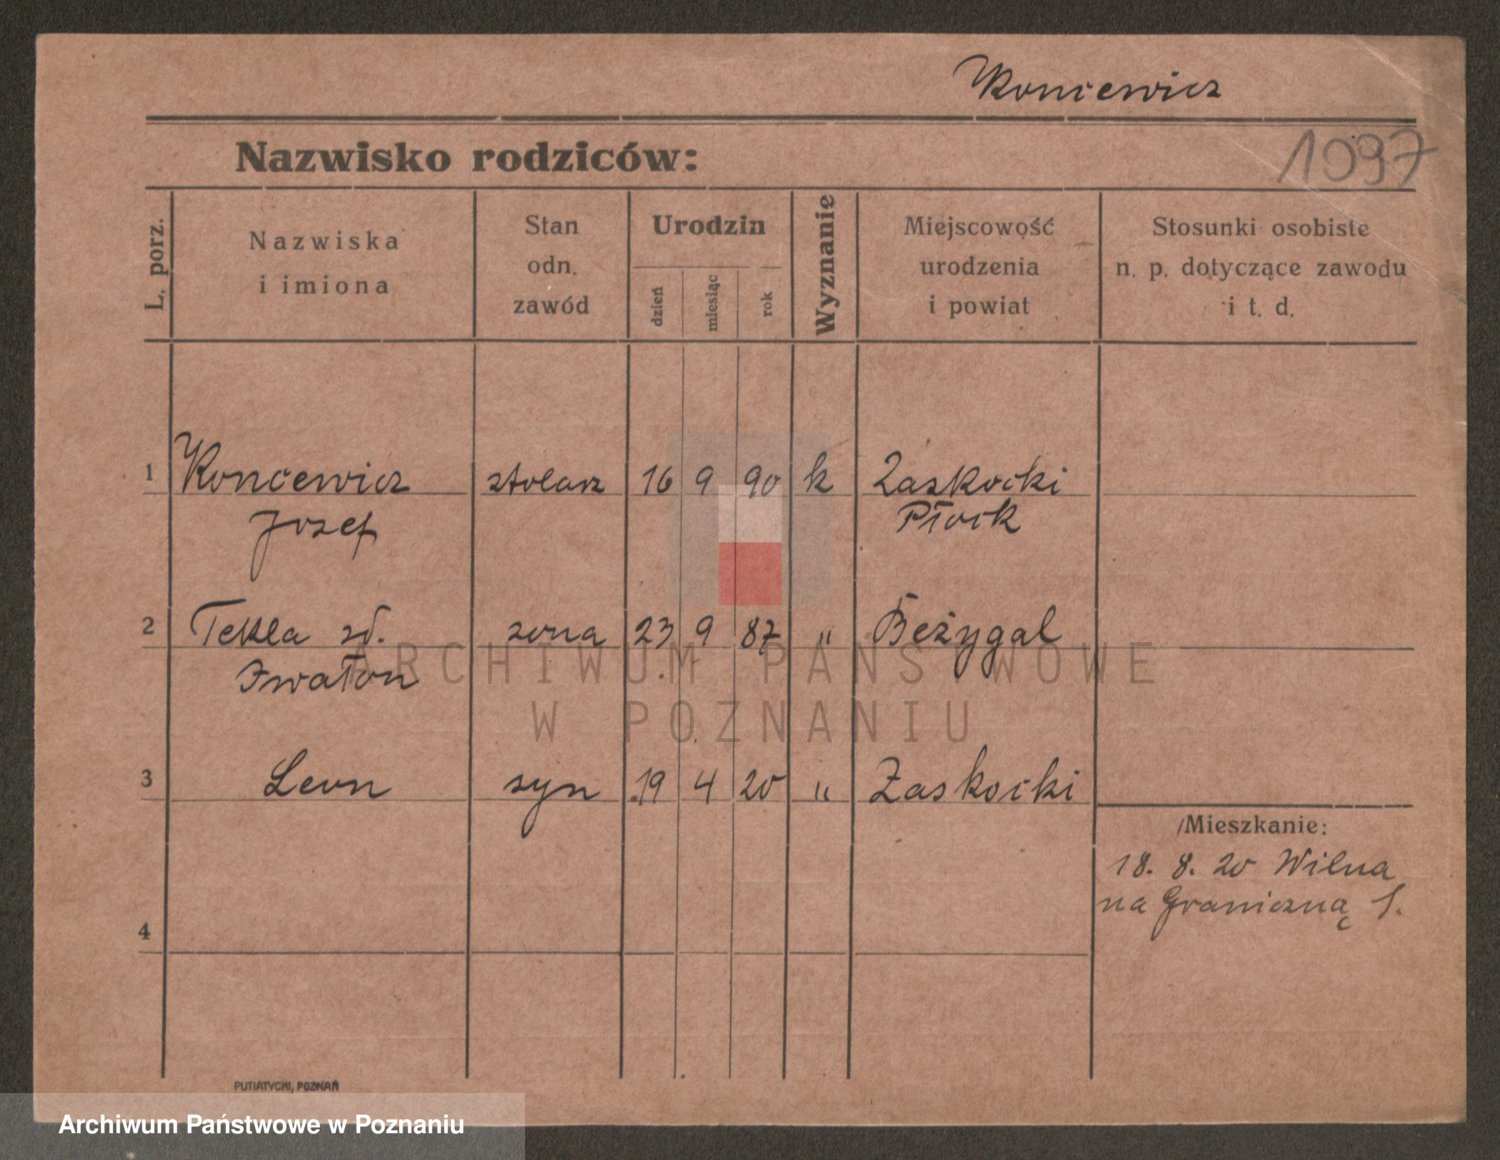 Koncewicz
Nazwisko rodziców:
1097
L. porz.
Nazwiska
i imiona
Stan
odn.
zawód
Urodzin
dzień
miesiąc
rok
Wyznanie
Miejscowość
urodzenia
i powiat
Stosunki osobiste
n. p. dotyczące zawodu
i t. d.
1 Koncewicz stolarz 16 9 90 k Zaskocki
Józef Płock
2 Tekla żona 23 9 87 " Beżygal
Iwaton
ARCHIWUM PAŃSTWOWE
W POZNANIU
3 Leon syn 19 4 20 " Zaskocki
Mieszkanie:
18. 8. 20 Wilna
na Graniczną
4
PUTIATYCKI, POZNAŃ
Archiwum Państwowe w Poznaniu